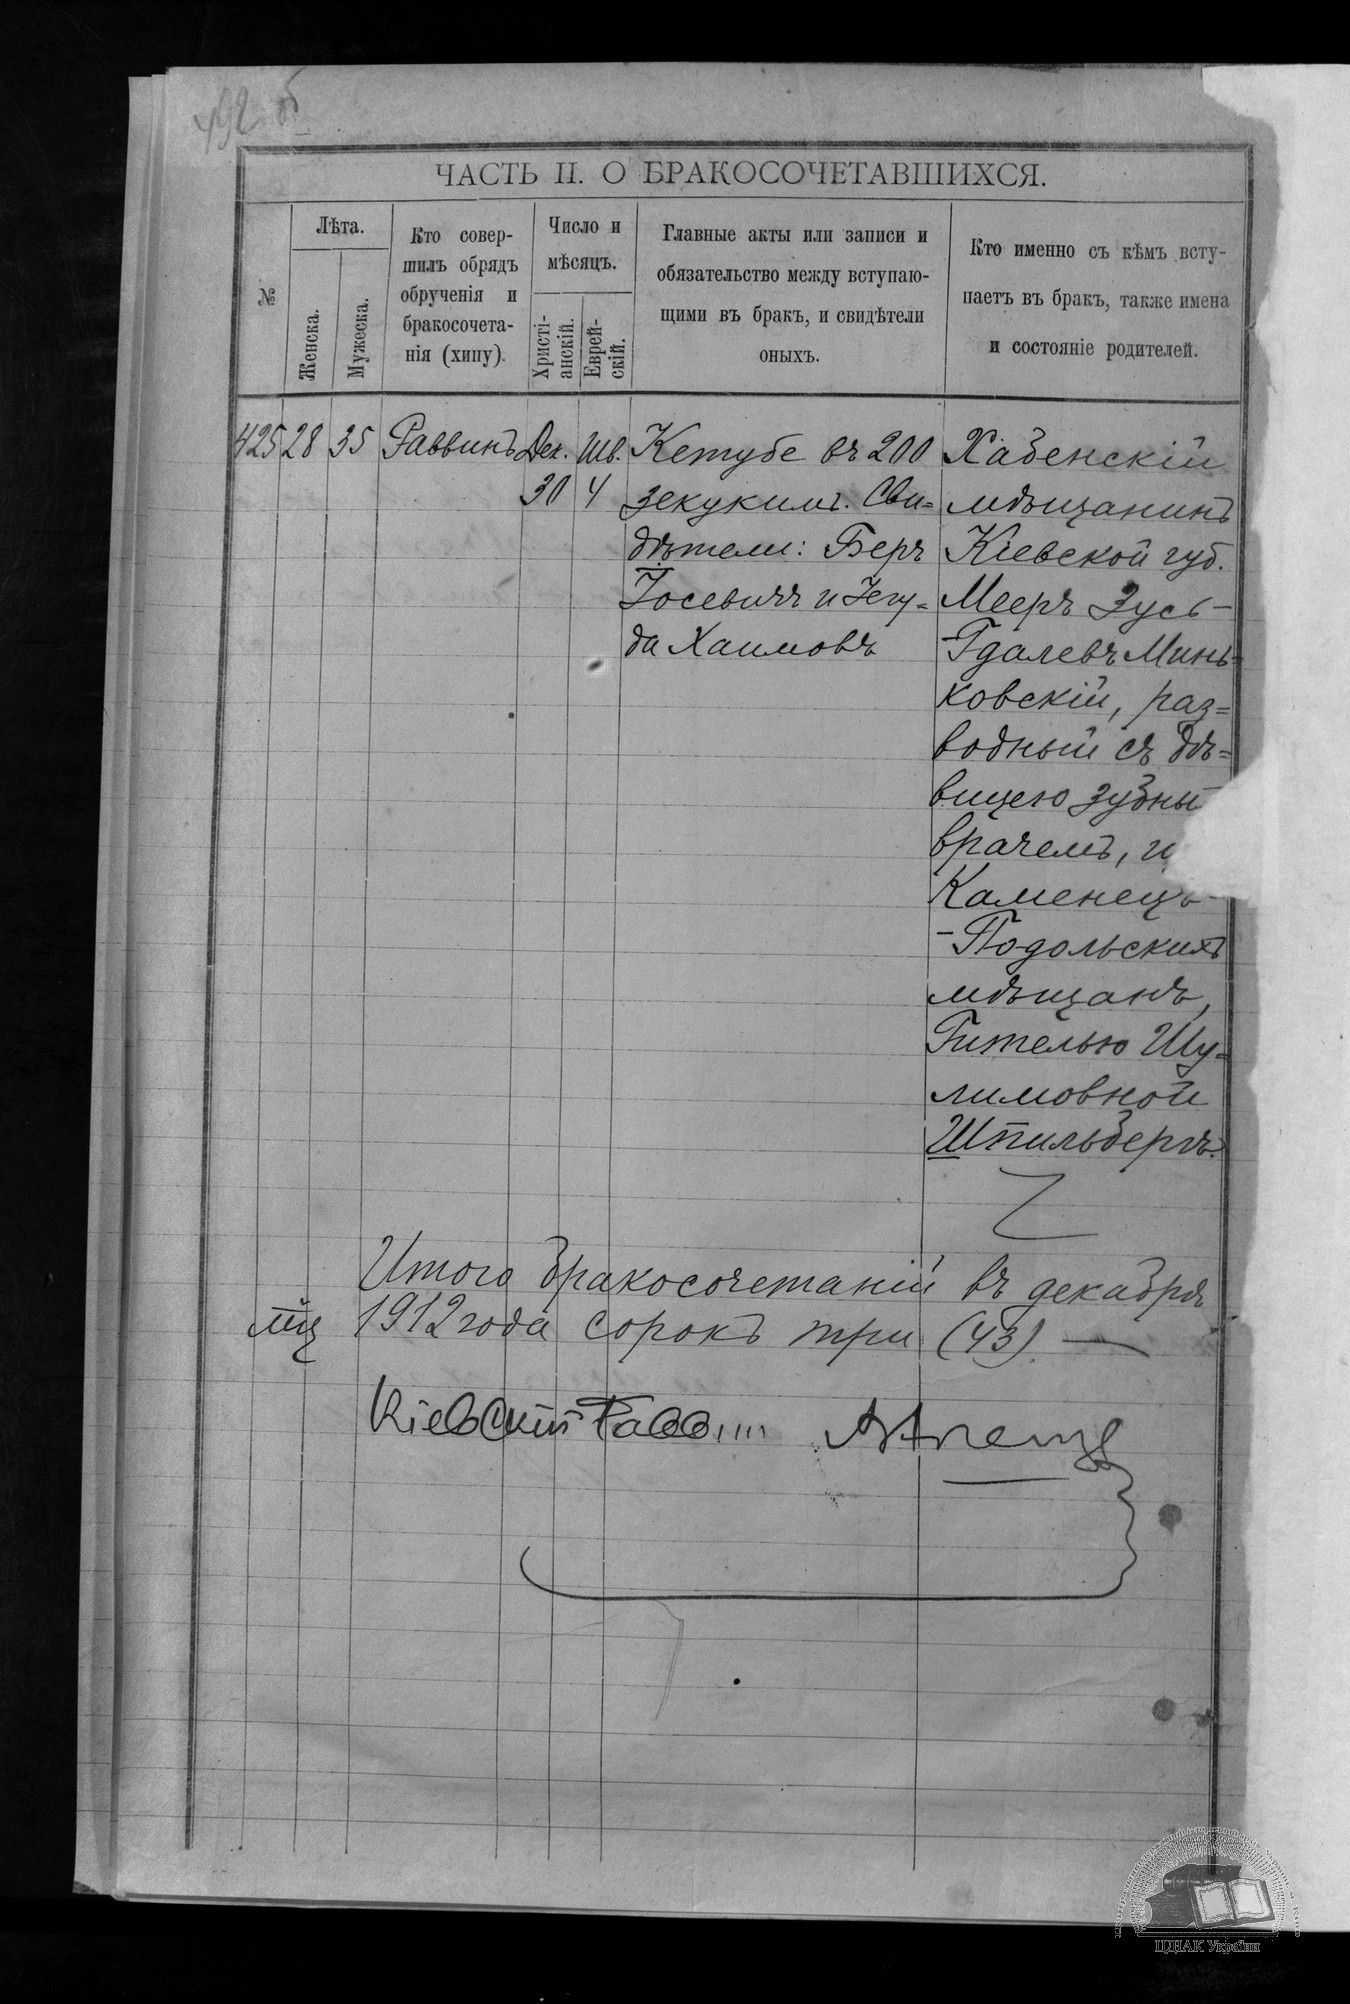 492 об
ЧАСТЬ II. О БРАКОСОЧЕТАВШИХСЯ.
№
Лѣта.
Женска.
Мужеска.
Кто совер-
шилъ обрядъ
обрученія и
бракосочета-
нія (хипу).
Число и
мѣсяцъ.
Христі-
анскій.
Еврей-
скій.
Главные акты или записи и
обязательство между вступаю-
щими въ бракъ, и свидѣтели
оныхъ.
Кто именно съ кѣмъ всту-
паетъ въ бракъ, также имена
и состояніе родителей.
425
28
35
Раввинъ
Дек.
30
Шв.
4
Кетубе въ 200
зекукимъ. Сви=
дѣтели: Беръ
Іосевичъ и Іегу=
да Хаимовъ
Хабенскій
мѣщанинъ
Кіевской губ.
Мееръ Зусь-
-Гдалевъ Минь=
ковскій, раз=
водный съ дѣ=
вицею зубны
врачемъ, и
Каменецъ-
-Подольскихъ
мѣщанъ,
Гителью Шу=
лимовной
Шпильбергъ.
Итого бракосочетаній въ декабрѣ
1912 года сорокъ три (43)
Кіевскій Раввин
ЦДІАК України